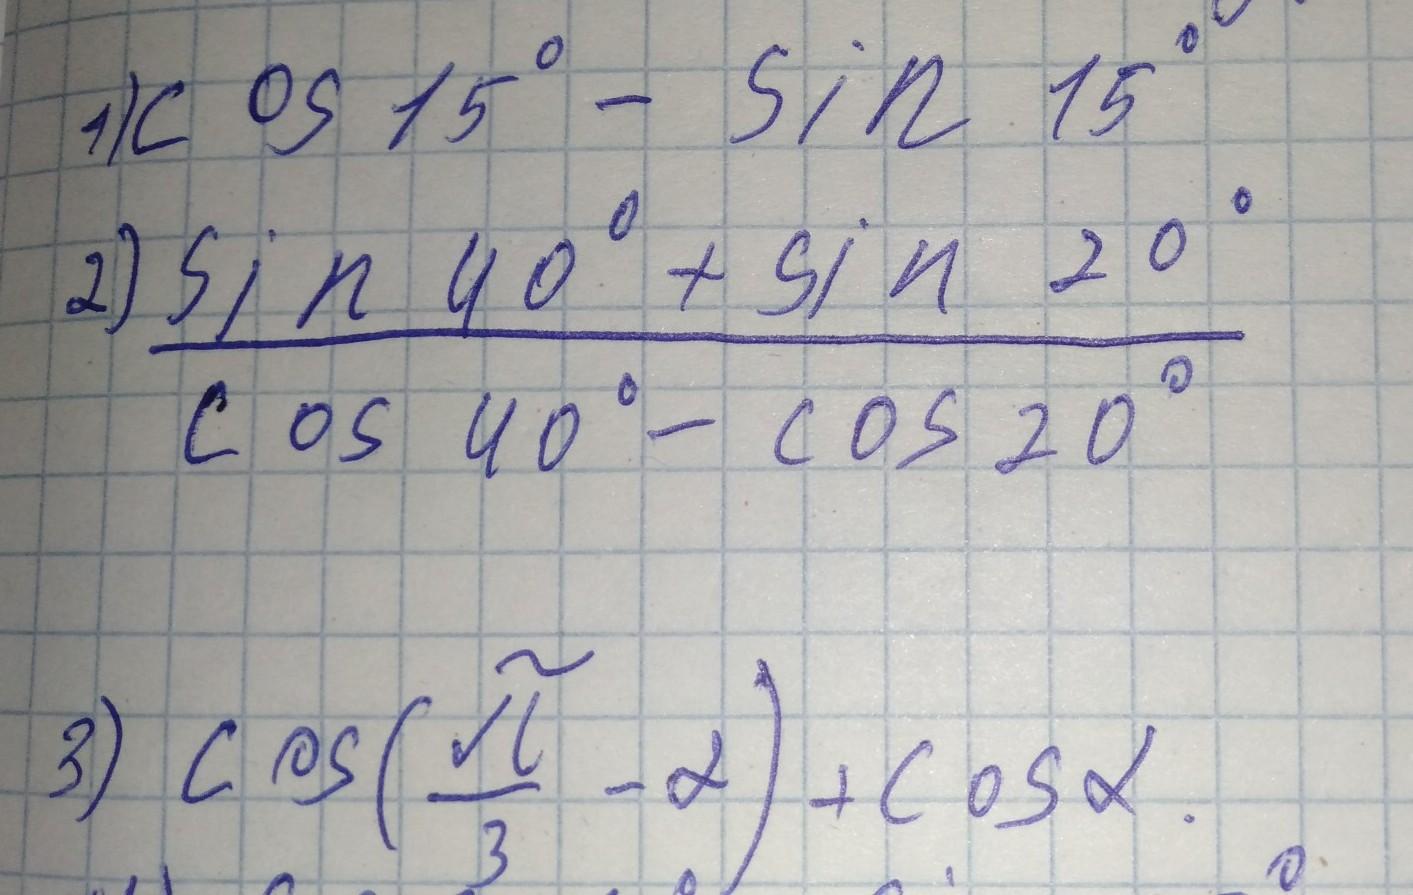 1) cos 15° - sin 15°
2) sin 40° + sin 20°
cos 40° - cos 20°
3) cos(π/3 - α) + cos α.